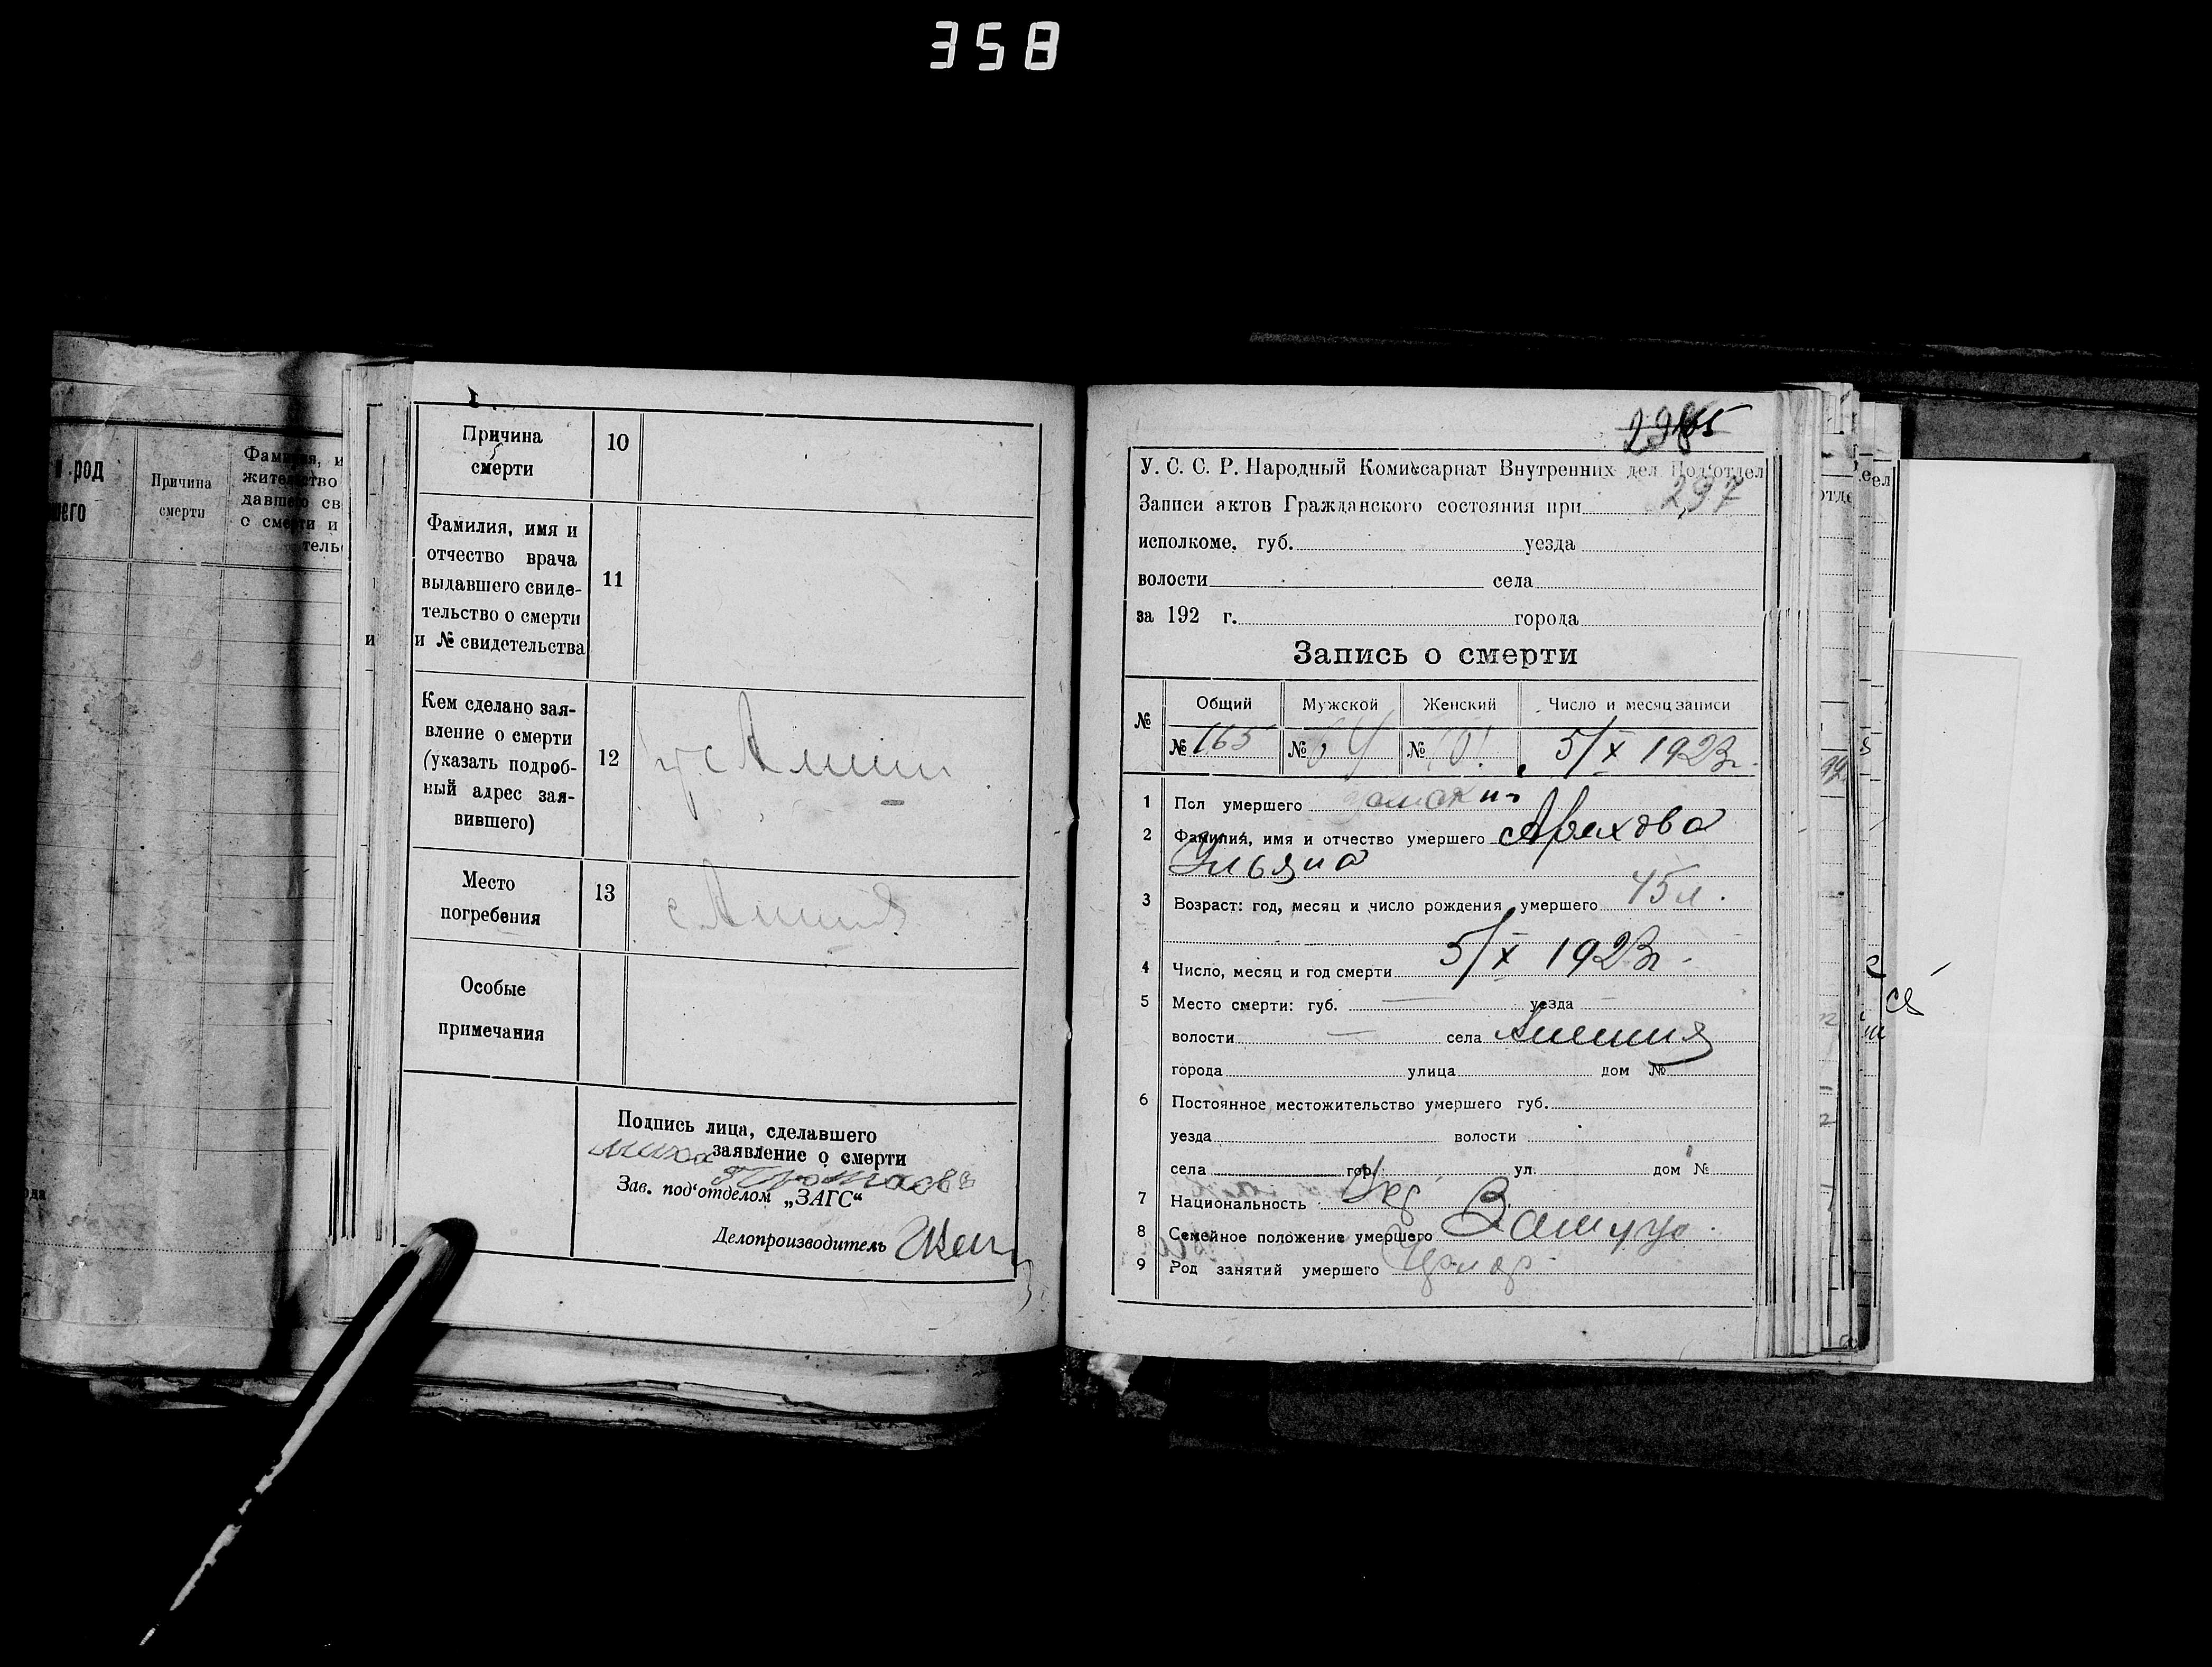 358
род
шего
Причина
смерти
Фамилия, и
жительство
давшего св
о смерти и
тель
Причина
смерти
10
Фамилия, имя и
отчество врача
выдавшего свиде-
тельство о смерти
и № свидетельства
11
Кем сделано зая-
вление о смерти
(указать подроб-
ный адрес зая-
вившего)
12
Место
погребения
13
Особые
примечания
Подпись лица, сделавшего
заявление о смерти
Зав. под'отделом „ЗАГС“
Делопроизводитель
У. С. С. Р. Народный Комиссариат Внутренних дел Под'отдел
297
Записи актов Гражданского состояния при
исполкоме. губ. уезда
волости села
за 192 г. города
Запись о смерти
№ Общий Мужской Женский Число и месяц записи
№ 165 № 64 № 101 5/X 1923 г.
1 Пол умершего
2 Фамилия, имя и отчество умершего
Ульяна
3 Возраст: год, месяц и число рождения умершего 45 л.
4 Число, месяц и год смерти 5/X 1923 г.
5 Место смерти: губ. — уезда —
волости — села
города улица дом №
6 Постоянное местожительство умершего губ.
уезда волости
села гор. ул. дом №
7 Национальность Укр
8 Семейное положение умершего Замуж.
9 Род занятий умершего